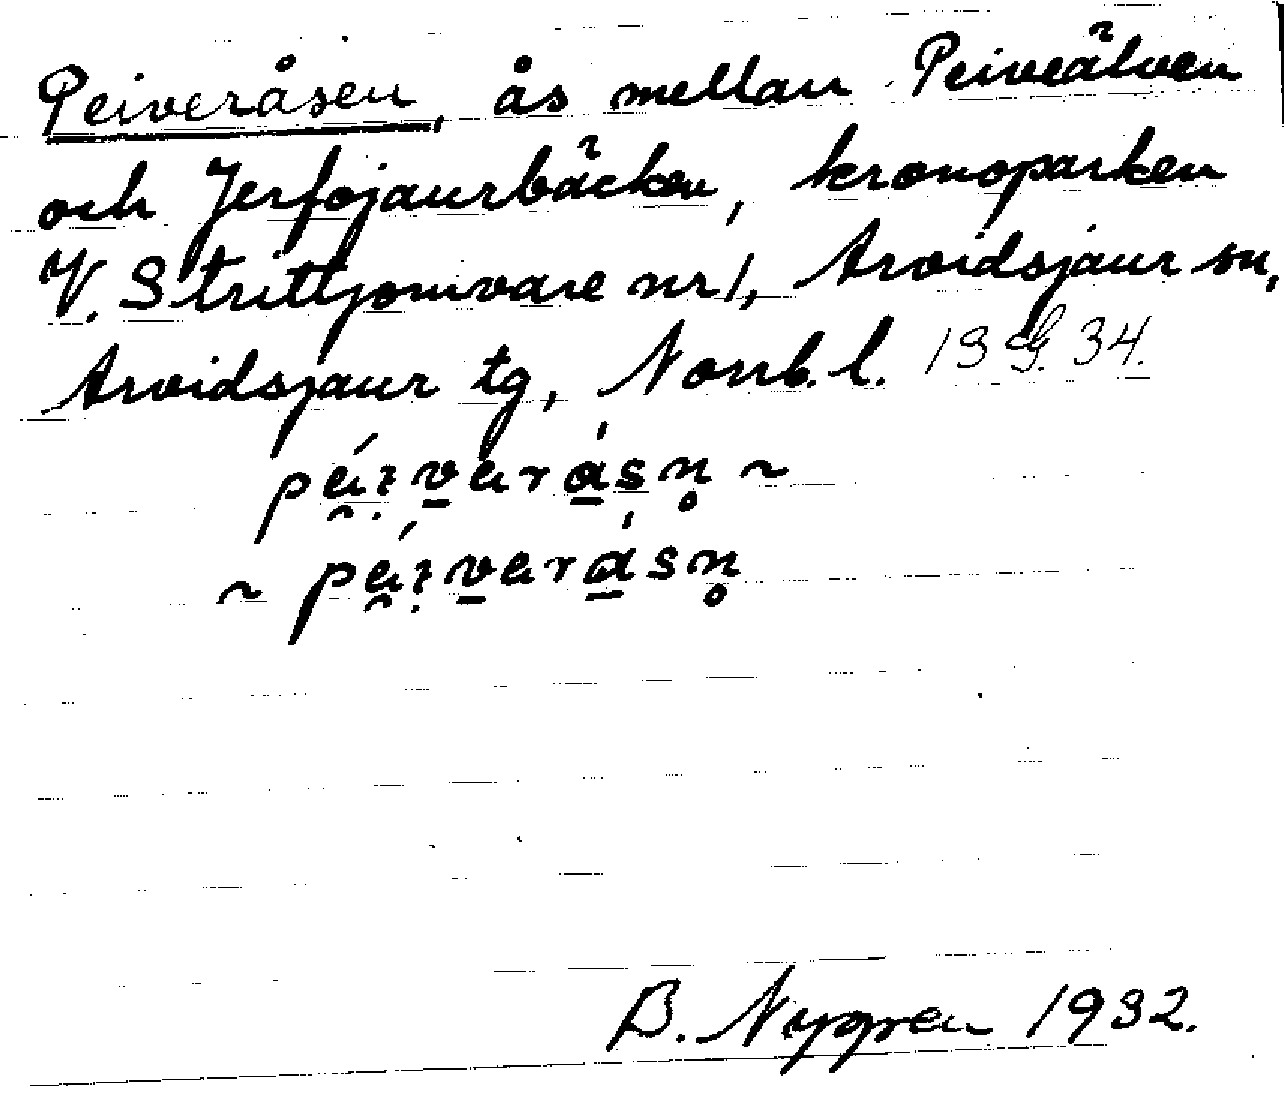 Peiveråsen, ås mellan Peiveälven
och Jerfojaurbäcken, kronoparken
V. Strittjomvare nr 1, Arvidsjaur sn,
Arvidsjaur tg, Norrb. l. 13 34.
~
~
B. Nygren 1932.